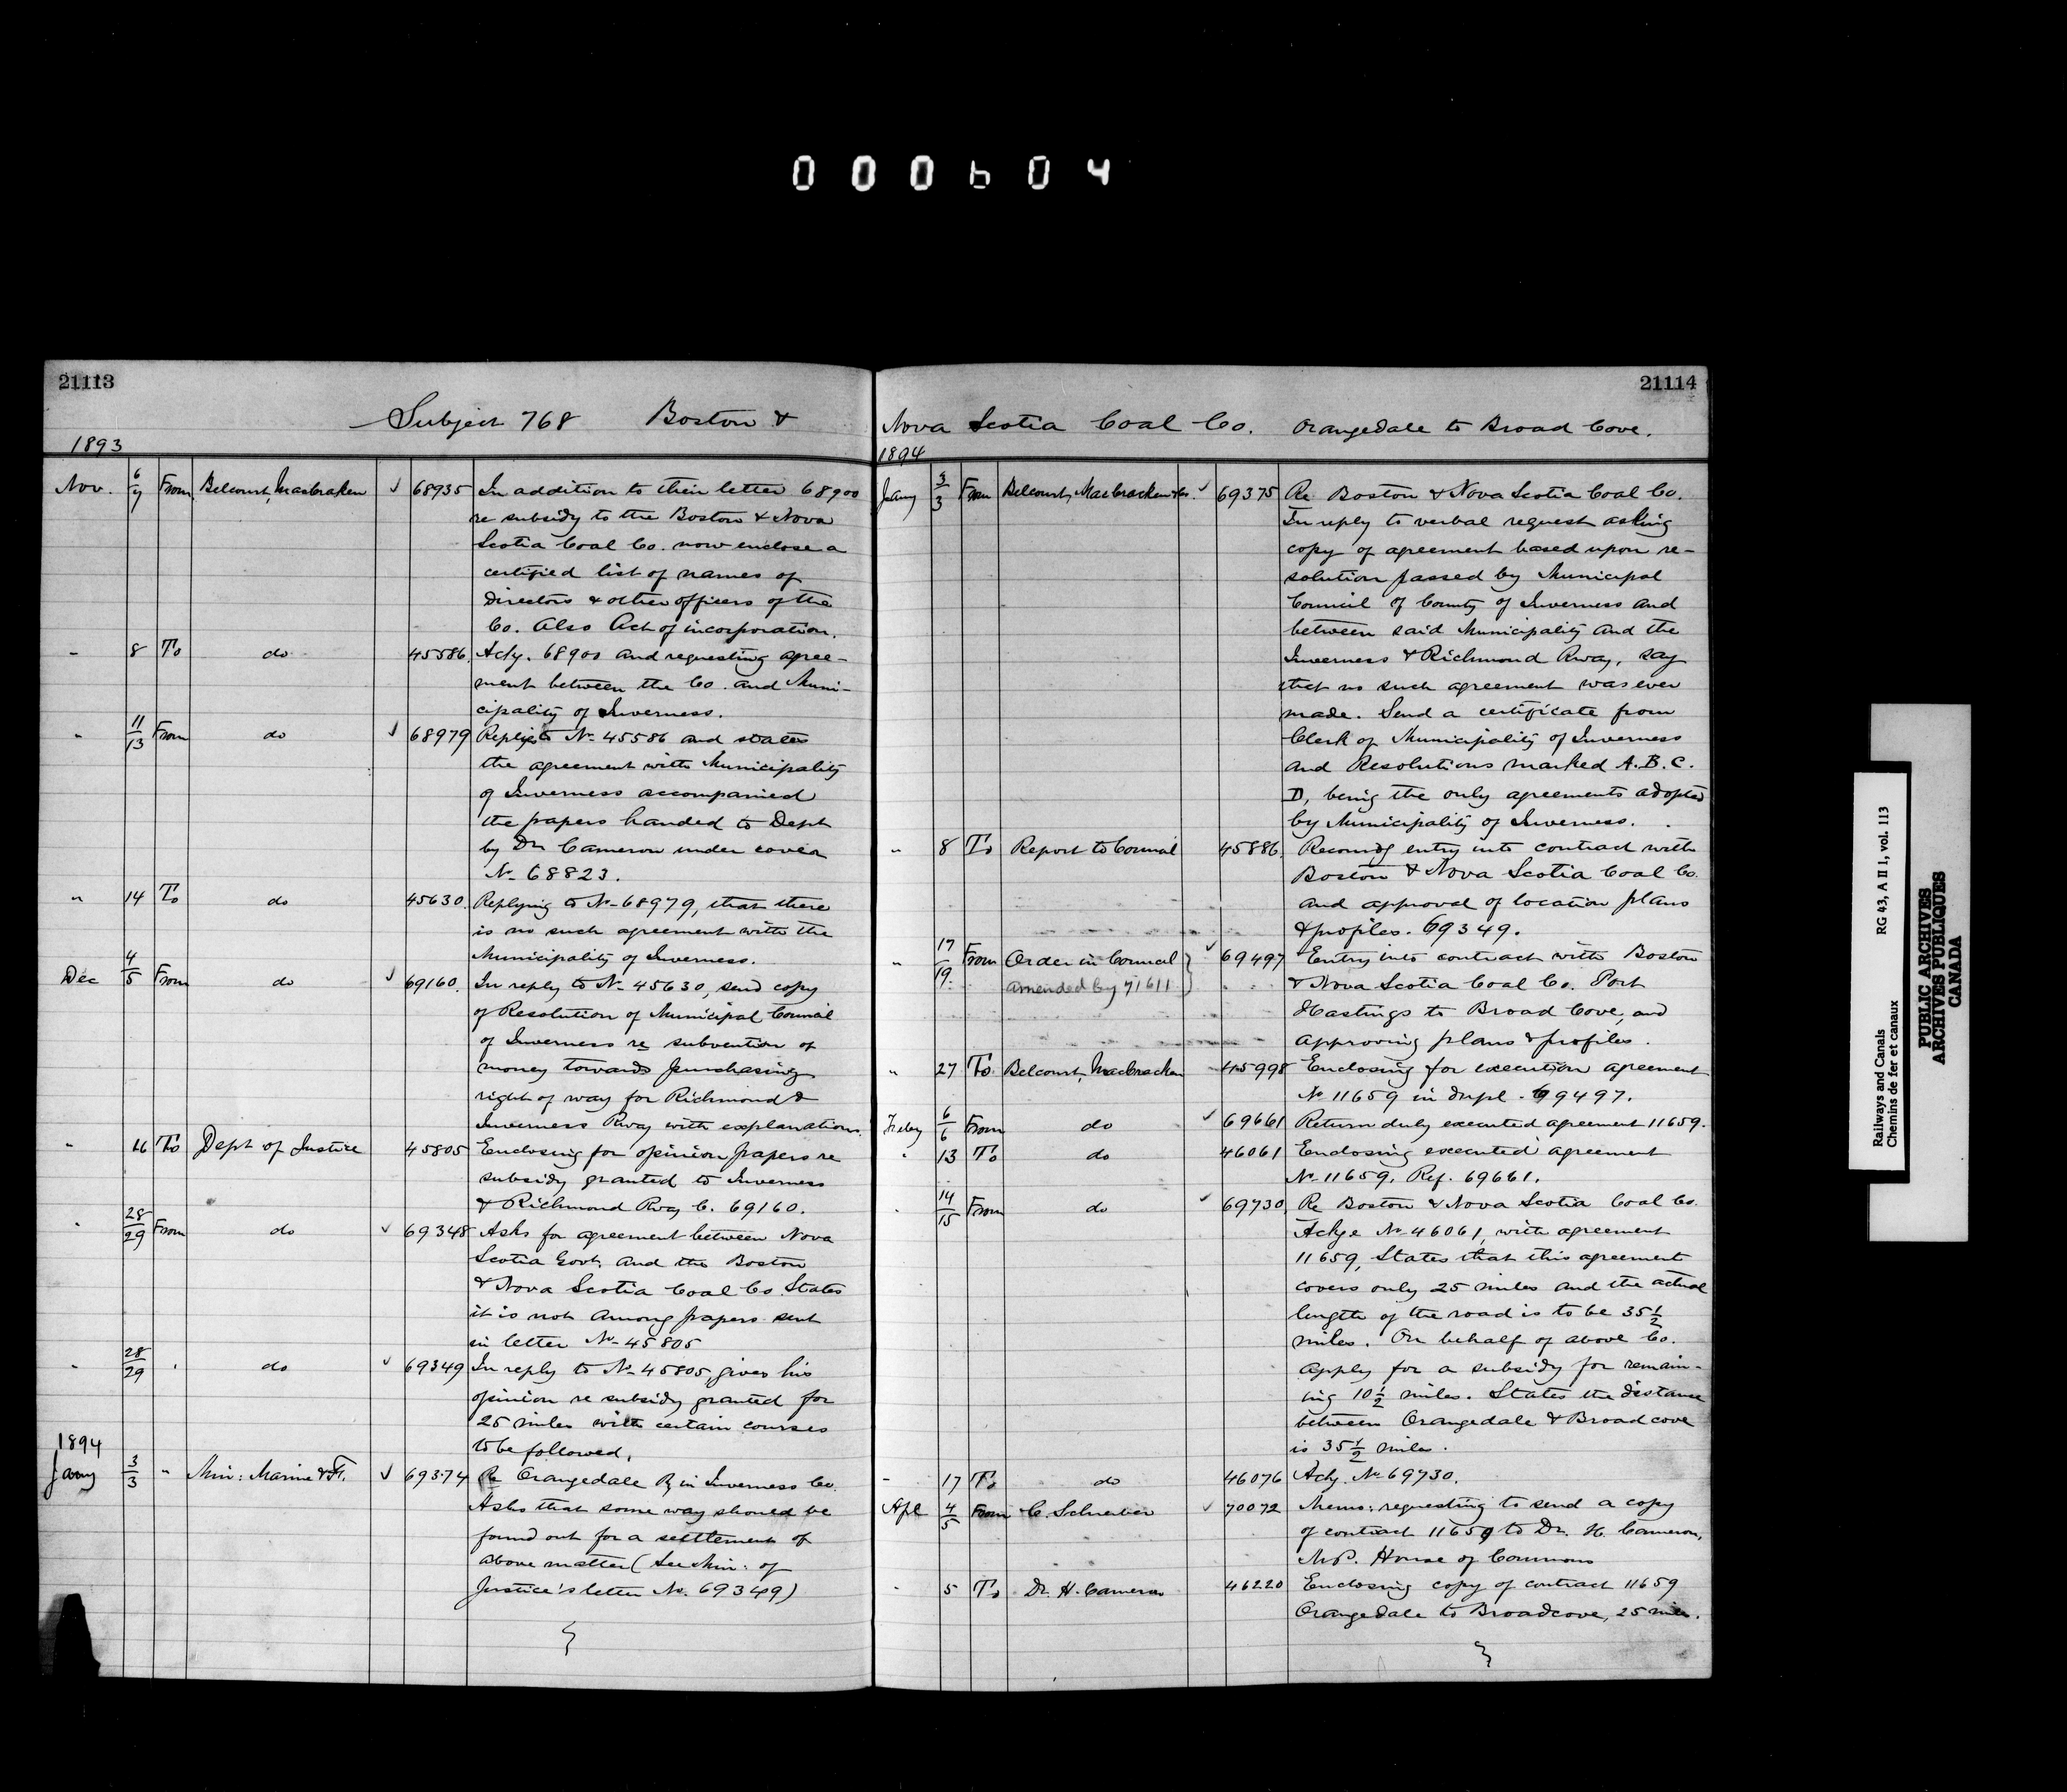 000604
21113
Subject 768 Boston &
1893
Nov. 6/7 From Belcourt, MacCraken ✓ 68935 In addition to their letter 68900
re subsidy to the Boston & Nova
Scotia Coal Co. now enclose a
certified list of names of
Directors & other officers of the
Co. Also Act of incorporation.
" 8 To do 45586. Ackg. 68900 and requesting agree-
ment between the Co. and Muni-
cipality of Inverness.
" 11/13 From do ✓ 68979 Replies to No 45586 and states
the agreement with Municipality
of Inverness accompanied
the papers handed to Dept
by Dr Cameron under cover
No 68823.
" 14 To do 45630. Replying to No 68979, that there
is no such agreement with the
Municipality of Inverness.
Dec 4/5 From do ✓ 69160. In reply to No 45630, send copy
of Resolution of Municipal Council
of Inverness re subvention of
money towards purchasing
right of way for Richmond &
Inverness Rway with explanations.
" 16 To Dept of Justice 45805 Enclosing for opinion papers re
subsidy granted to Inverness
& Richmond Rway C. 69160.
" 28/29 From do ✓ 69348 Asks for agreement between Nova
Scotia Govt. and the Boston
& Nova Scotia Coal Co States
it is not among papers sent
in letter No 45805
" 28/29 " do ✓ 69349 In reply to No 45805, gives his
opinion re subsidy granted for
25 miles with certain courses
to be followed.
1894
Jany 3/3 " Min: Marine & F. ✓ 69374 Re Orangedale Ry in Inverness Co.
Asks that some way should be
found out for a settlement of
above matter (See Min: of
Justice's letter No. 69349)
21114
Nova Scotia Coal Co. Orangedale to Broad Cove.
1894
Jany 3/3 From Belcourt, MacCracken & Co. ✓ 69375 Re Boston & Nova Scotia Coal Co.
In reply to verbal request asking
copy of agreement based upon re-
solution passed by Municipal
Council of County of Inverness and
between said Municipality and the
Inverness & Richmond Rway, say
that no such agreement was ever
made. Send a certificate from
Clerk of Municipality of Inverness
and Resolutions marked A. B. C.
D, being the only agreements adopted
by Municipality of Inverness.
" 8 To Report to Council 45886. Recomdg entry into contract with
Boston & Nova Scotia Coal Co.
and approval of location plans
& profiles. 69349.
" 17/19 From Order in Council ✓ 69497 Entry into contract with Boston
amended by 71611 & Nova Scotia Coal Co. Port
Hastings to Broad Cove, and
approving plans & profiles.
" 27 To Belcourt, MacCracken 45998 Enclosing for execution agreement
No 11659 in dupl. 69497.
Feby 6/6 From do ✓ 69661 Return duly executed agreement 11659.
" 13 To do 46061 Enclosing executed agreement
No 11659. Ref. 69661.
" 14/15 From do ✓ 69730. Re Boston & Nova Scotia Coal Co.
Ackge No 46061, with agreement
11659, States that this agreement
covers only 25 miles and the actual
length of the road is to be 35 1/2
miles. On behalf of above Co.
apply for a subsidy for remain-
ing 10 1/2 miles. States the distance
between Orangedale & Broad cove
is 35 1/2 miles.
" 17 To do 46076 Ackg. No 69730.
Apl 4/5 From C. Schreiber ✓ 70072 Memo: requesting to send a copy
of contract 11659 to Dr. H. Cameron,
M.P. House of Commons
" 5 To Dr. H. Cameron 46220 Enclosing copy of contract 11659
Orangedale to Broadcove, 25 miles.
Railways and Canals RG 43, A II 1, vol. 113
Chemins de fer et canaux
PUBLIC ARCHIVES
ARCHIVES PUBLIQUES
CANADA